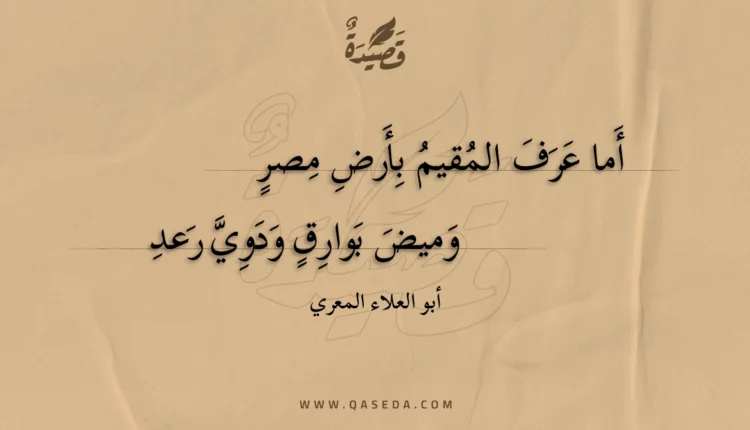 قَصِيدَةٌ
أَما عَرَفَ المُقيمُ بِأَرضِ مِصرٍ
وَميضَ بَوارِقٍ وَدَوِيَّ رَعدِ
أبو العلاء المعري
WWW.QASEDA.COM